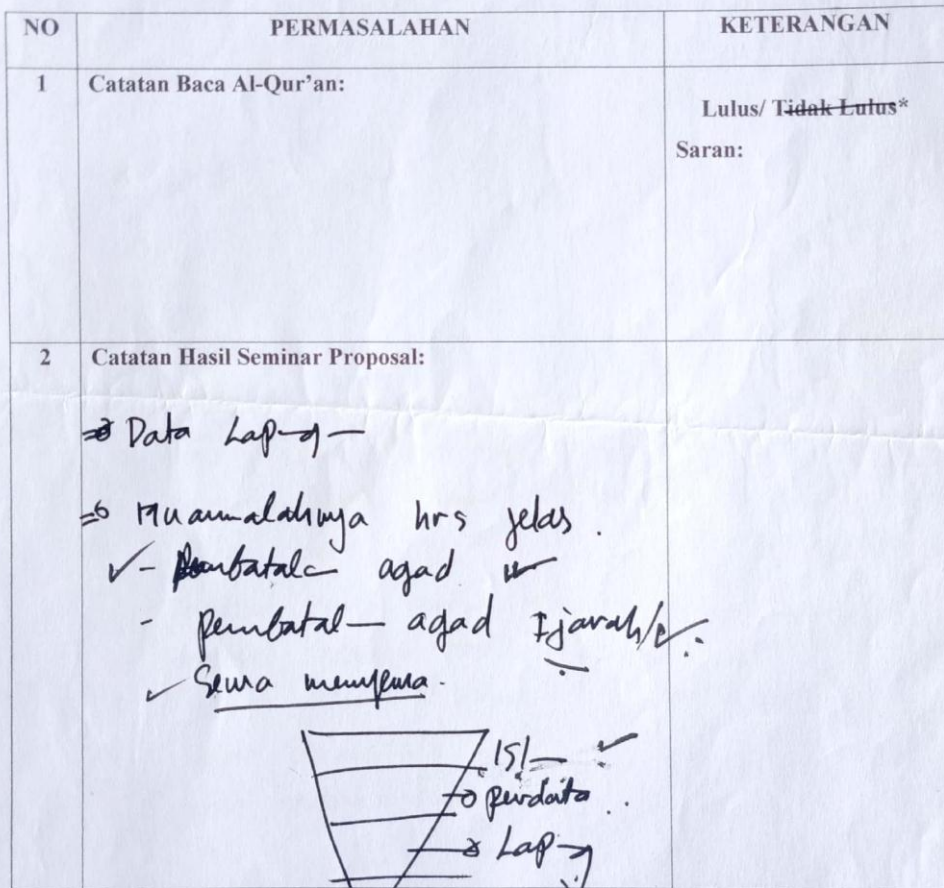 NO PERMASALAHAN KETERANGAN
1 Catatan Baca Al-Qur'an:
Lulus/ Tidak Lulus*
Saran:
2 Catatan Hasil Seminar Proposal:
Data Lap
Muammalahnya hrs jelas.
- agad
- pembatal— agad Ijarah/
Sewa menyewa.
ISl
perdata
Lap